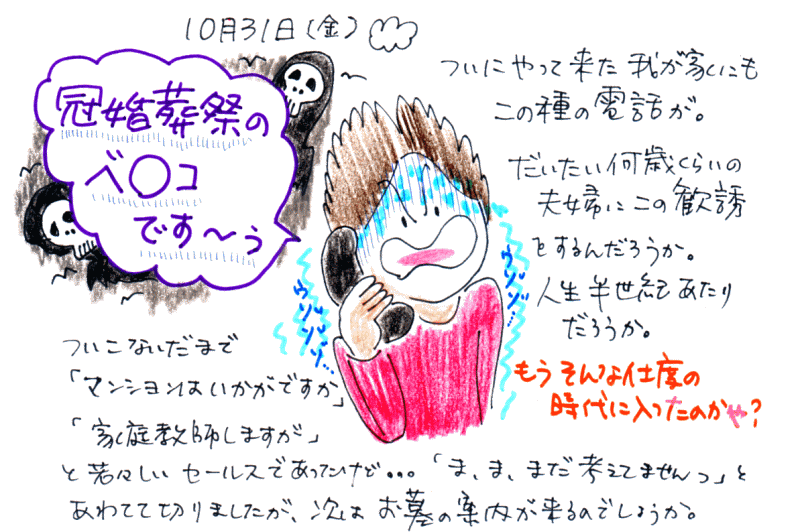 10月31日(金)
冠婚葬祭の
ベ〇コ
です〜ぅ
ついにやって来た 我が家にも
この種の電話が。
だいたい何歳くらいの
夫婦にこの歓誘
をするんだろうか。
人生半世紀あたり
だろうか。
もうそんな仕度の
時代に入ったのかや?
ゾゾゾ…
ゾゾゾ…
ついこないだまで
「マンションはいかがですか」
「家庭教師しますが」
と若々しいセールスであったけど...「ま、ま、まだ考えてませんっ」と
あわてて切りましたが、次はお墓の案内が来るのでしょうか。